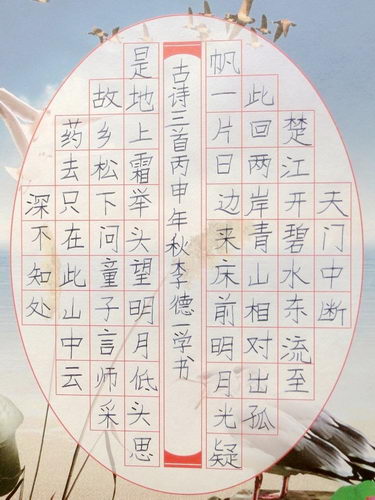 天门中断
楚江开碧水东流至
此回两岸青山相对出孤
帆一片日边来床前明月光疑
古诗三首丙申年秋李德一学书
是地上霜举头望明月低头思
故乡松下问童子言师采
药去只在此山中云
深不知处